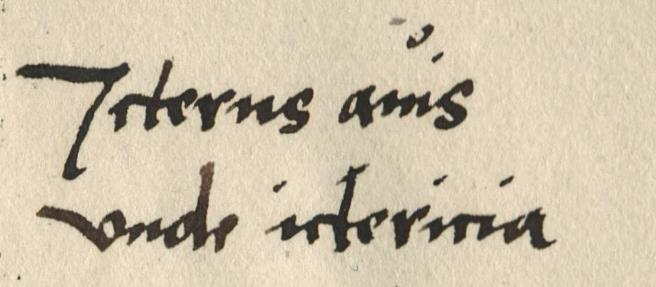 Icterus auis
vnde ictericia